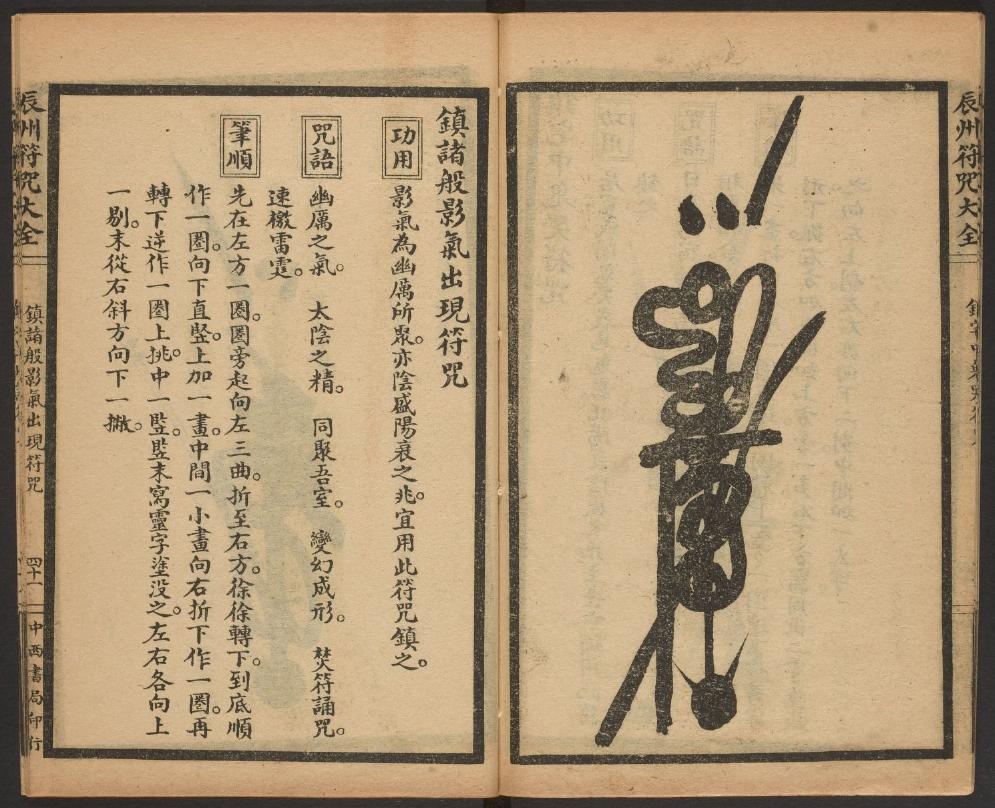 辰州符咒大全
鎮諸般影氣出現符咒
功用
影氣為幽厲所聚。亦陰盛陽衰之兆。宜用此符咒鎮之。
咒語
幽厲之氣。 太陰之精。 同聚吾室。 變幻成形。 焚符誦咒。
速檄雷霆。
筆順
先在左方一圈。圈旁起向左三曲。折至右方。徐徐轉下。到底順
作一圈。向下直豎。上加一畫。中間一小畫向右折下作一圈。再
轉下逆作一圈上挑。中一豎。豎末寫靈字塗没之。左右各向上
一剔。末從右斜方向下一撇。
辰州符咒大全
鎮諸般影氣出現符咒
四十一
中西書局印行